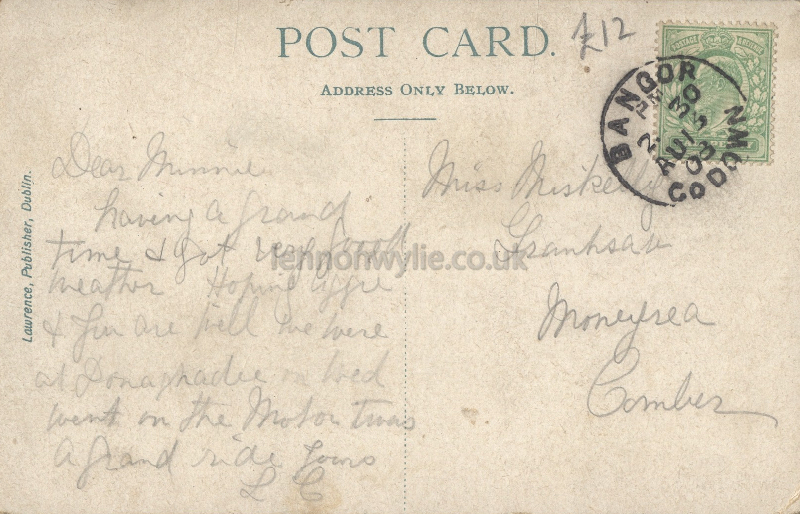 POST CARD.
£12
ADDRESS ONLY BELOW.
BANGOR
CO DOWN
2 30 PM
AU 15
03
POSTAGE & REVENUE
Lawrence, Publisher, Dublin.
Dear Minnie
having a grand
time & got very good
weather Hoping
& you are well we were
at Donaghadee on Wed
went on the Motor twas
a grand ride yours
L C
Miss Miskelly
Moneyrea
Comber
lennonwylie.co.uk